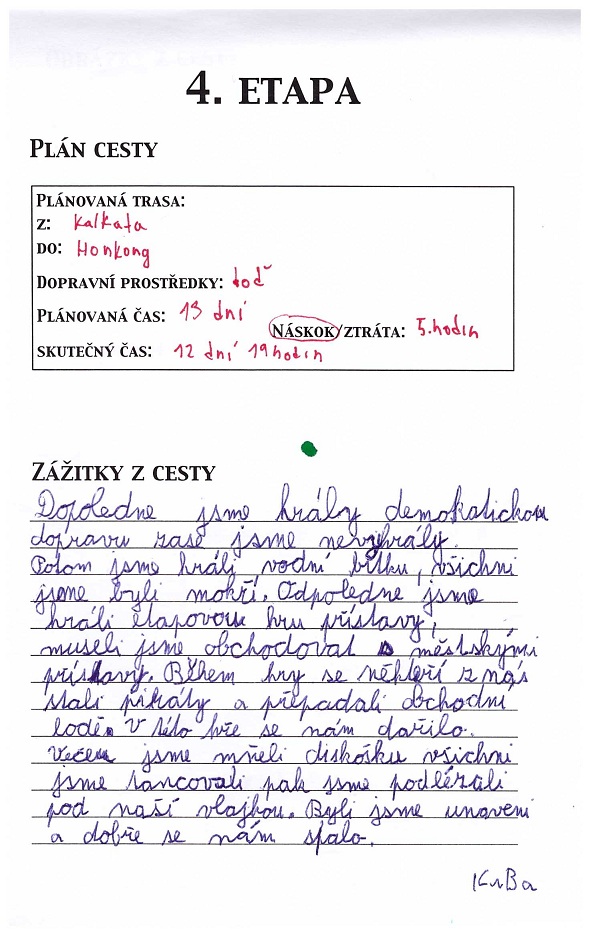 4. ETAPA
PLÁN CESTY
PLÁNOVANÁ TRASA:
Z: Kalkata
DO: Honkong
DOPRAVNÍ PROSTŘEDKY: loď
PLÁNOVANÁ ČAS: 13 dní
NÁSKOK/ZTRÁTA: 5.hodin
SKUTEČNÝ ČAS: 12 dní 19hodin
ZÁŽITKY Z CESTY
Dopoledne jsme hrály demokatickou
dopravu zase jsme nevyhrály.
Potom jsme hráli vodní bitku, všichni
jsme byli mokří. Odpoledne jsme
hráli etapovou hru přístavy,
museli jsme obchodovat s městskými
přístavy. Během hry se někteří z nás
stali pikáty a přepadali obchodní
lodě. V této hře se nám dařilo.
Večer jsme mněli diskošku všichni
jsme tancovali pak jsme podlézali
pod naší vlajkou. Byli jsme unaveni
a dobře se nám spalo.
KuBa